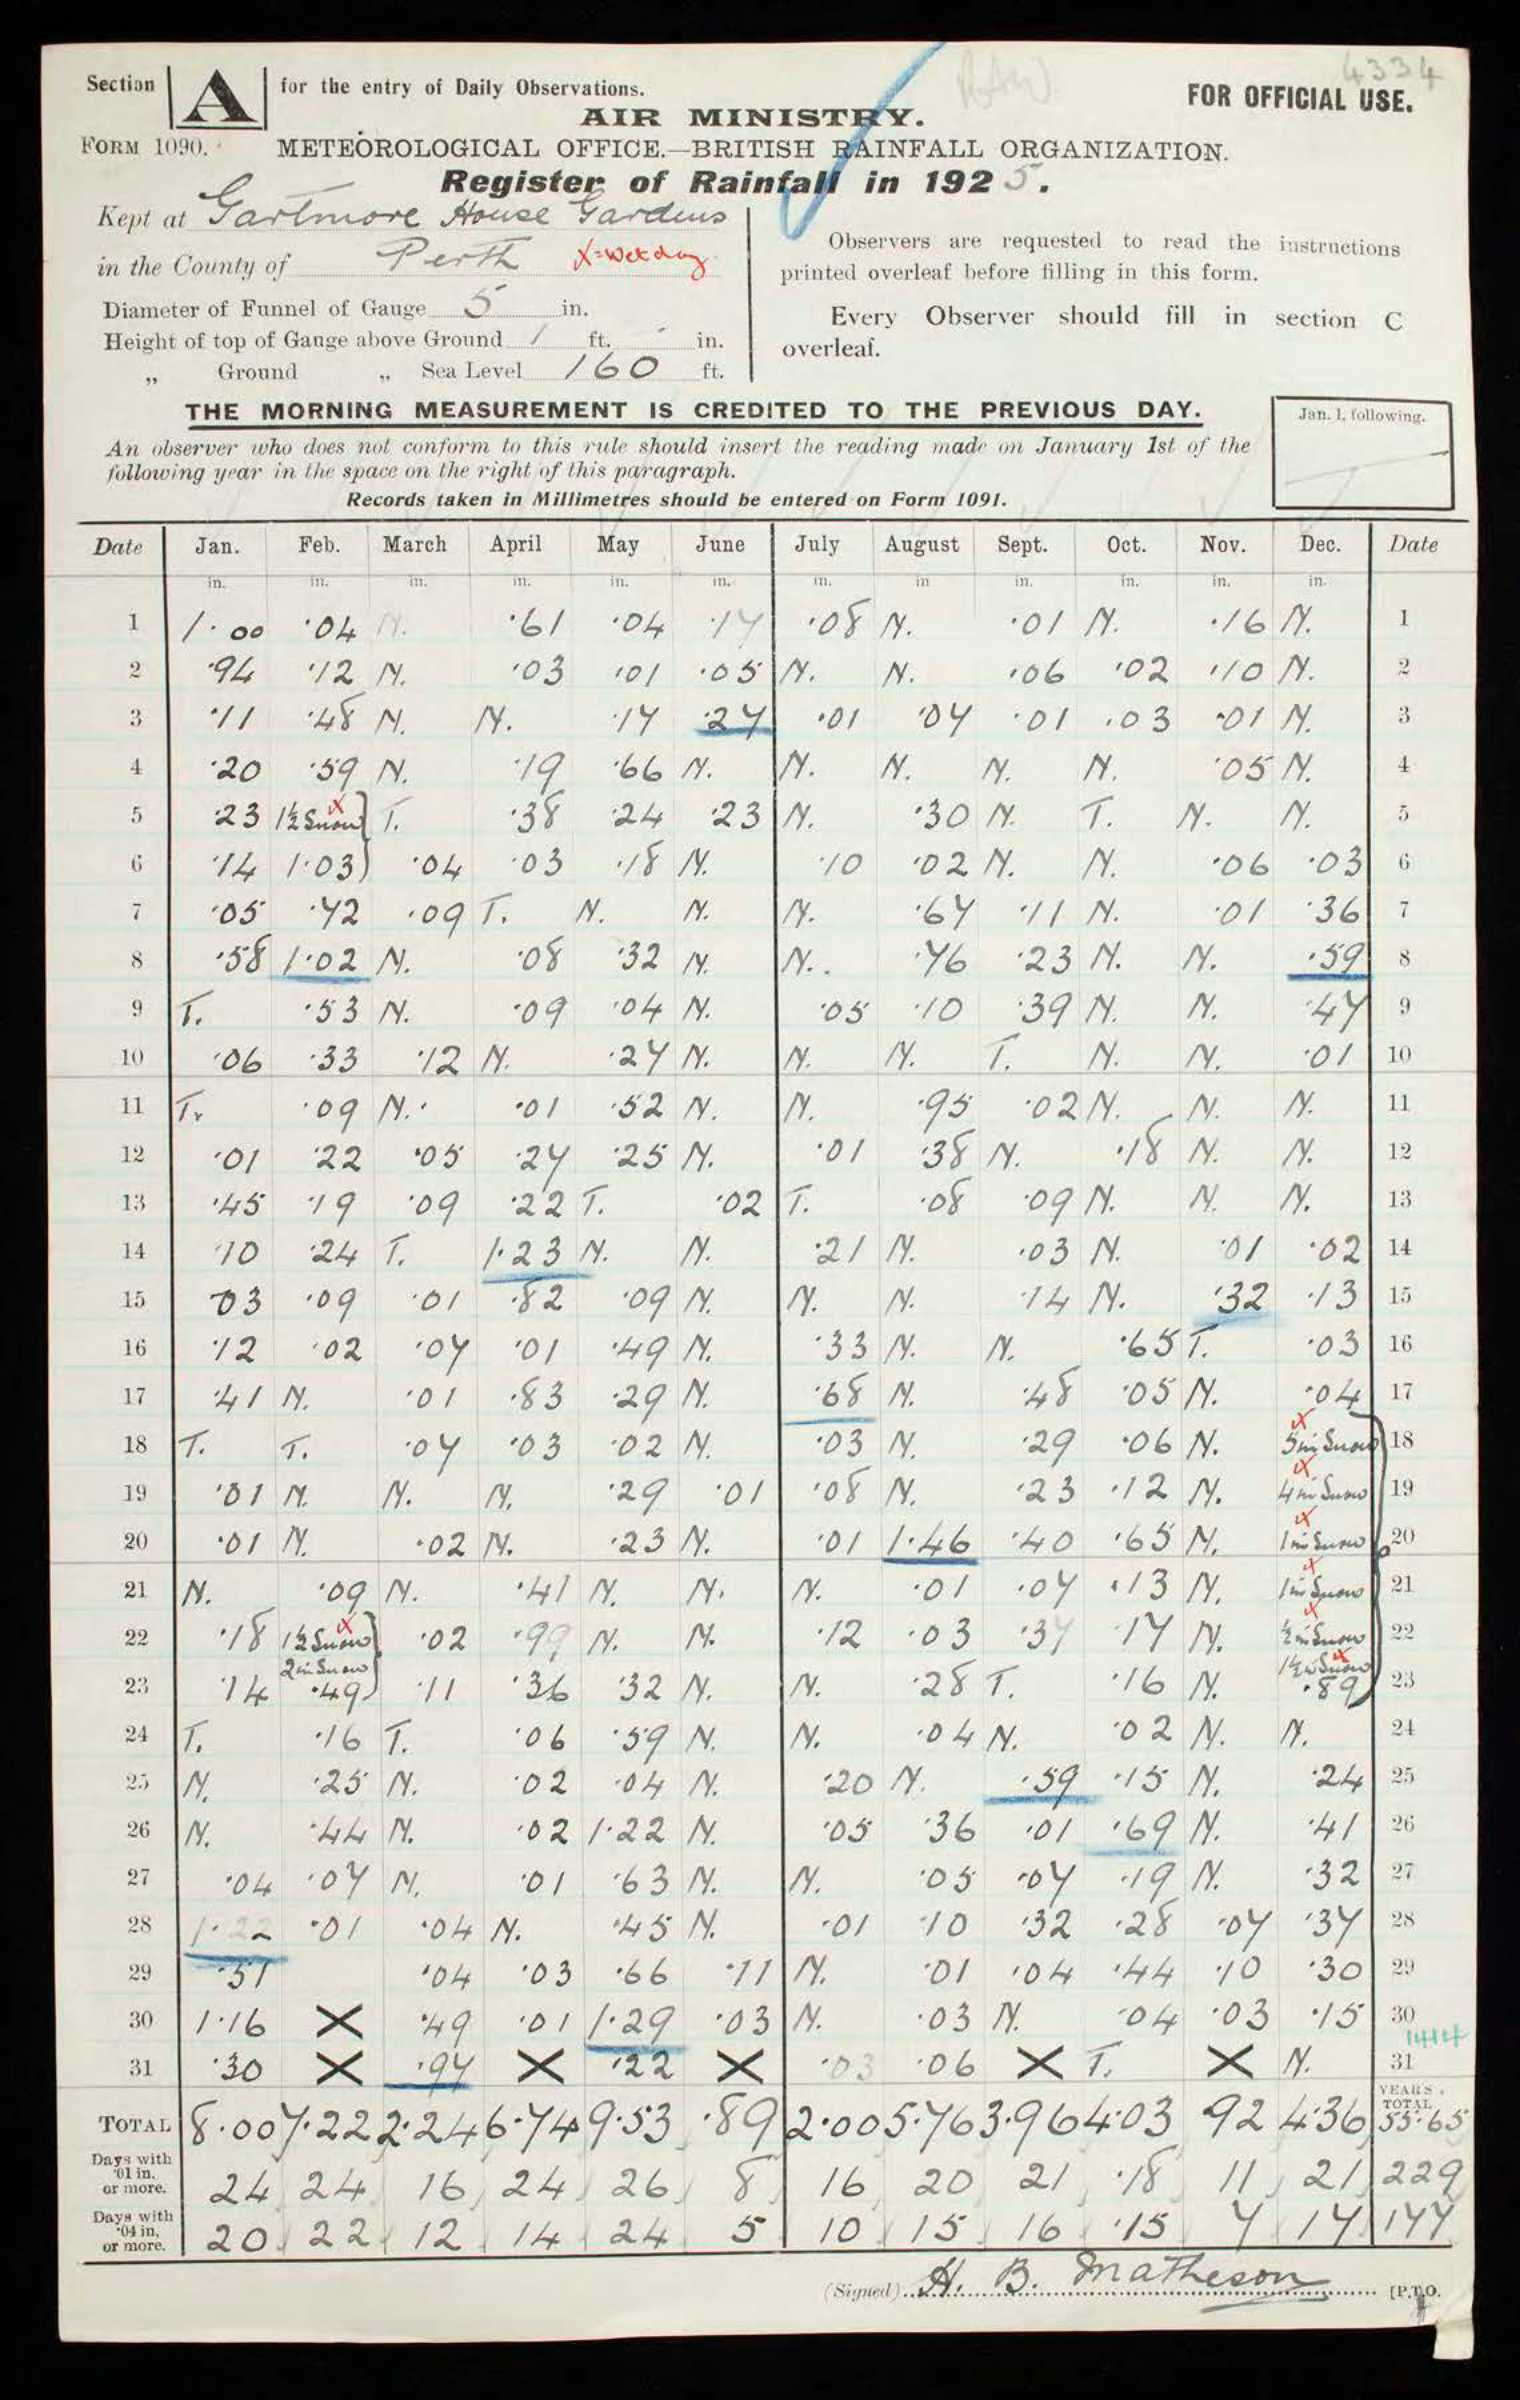 4334
Section A for the entry of Daily Observations.
FOR OFFICIAL USE.
AIR MINISTRY.
FORM 1090. METEOROLOGICAL OFFICE.—BRITISH RAINFALL ORGANIZATION.
Register of Rainfall in 1925.
Kept at Gartmore House Gardens
in the County of Perth X=wet day
Diameter of Funnel of Gauge 5 in.
Height of top of Gauge above Ground 1 ft. - in.
„ Ground „ Sea Level 160 ft.
Observers are requested to read the instructions
printed overleaf before filling in this form.
Every Observer should fill in section C
overleaf.
THE MORNING MEASUREMENT IS CREDITED TO THE PREVIOUS DAY.
An observer who does not conform to this rule should insert the reading made on January 1st of the
following year in the space on the right of this paragraph.
Records taken in Millimetres should be entered on Form 1091.
Jan. 1, following.
Date Jan. Feb. March April May June July August Sept. Oct. Nov. Dec. Date
in. in. in. in. in. in. in. in in. in. in. in.
1 1.00 .04 N. .61 .04 .17 .08 N. .01 N. .16 N. 1
2 .94 .12 N. .03 .01 .05 N. N. .06 .02 .10 N. 2
3 .11 .48 N. N. .17 .27 .01 .07 .01 .03 .01 N. 3
4 .20 .59 N. .19 .66 N. N. N. N. N. .05 N. 4
5 .23 1½ Snow x T. .38 .24 .23 N. .30 N. T. N. N. 5
6 .14 1.03 .04 .03 .18 N. .10 .02 N. N. .06 .03 6
7 .05 .72 .09 T. N. N. N. .67 .11 N. .01 .36 7
8 .58 1.02 N. .08 .32 N. N. .76 .23 N. N. .59 8
9 T. .53 N. .09 .04 N. .05 .10 .39 N. N. .47 9
10 .06 .33 .12 N. .27 N. N. N. T. N. N. .01 10
11 T. .09 N. .01 .52 N. N. .95 .02 N. N. N. 11
12 .01 .22 .05 .27 .25 N. .01 .38 N. .18 N. N. 12
13 .45 .19 .09 .22 T. .02 T. .08 .09 N. N. N. 13
14 .10 .24 T. 1.23 N. N. .21 N. .03 N. .01 .02 14
15 .03 .09 .01 .82 .09 N. N. N. .14 N. .32 .13 15
16 .12 .02 .07 .01 .49 N. .33 N. N. .65 T. .03 16
17 .41 N. .01 .83 .29 N. .68 N. .48 .05 N. .04 17
18 T. T. .07 .03 .02 N. .03 N. .29 .06 N. x 5 in Snow 18
19 .01 N. N. N. .29 .01 .08 N. .23 .12 N. x 4 in Snow 19
20 .01 N. .02 N. .23 N. .01 1.46 .40 .65 N. x 1 in Snow 20
21 N. .09 N. .41 N. N. N. .01 .07 .13 N. x 1 in Snow 21
22 .18 1½ Snow x .02 .99 N. N. .12 .03 .37 .17 N. x ½ in Snow 22
2 in Snow 1½ in Snow x
23 .14 .49 .11 .36 .32 N. N. .28 T. .16 N. .89 23
24 T. .16 T. .06 .59 N. N. .04 N. .02 N. N. 24
25 N. .25 N. .02 .04 N. .20 N. .59 .15 N. .24 25
26 N. .44 N. .02 1.22 N. .05 .36 .01 .69 N. .41 26
27 .04 .07 N. .01 .63 N. N. .05 .07 .19 N. .32 27
28 1.22 .01 .04 N. .45 N. .01 .10 .32 .28 .07 .37 28
29 .51 .04 .03 .66 .11 N. .01 .04 .44 .10 .30 29
30 1.16 X .49 .01 1.29 .03 N. .03 N. .04 .03 .15 30
1414
31 .30 X .97 X .22 X .03 .06 X T. X N. 31
TOTAL 8.00 7.22 2.24 6.74 9.53 .89 2.00 5.76 3.96 4.03 92 4.36 YEAR'S TOTAL 55.65
Days with .01 in. or more. 24 24 16 24 26 8 16 20 21 .18 11 21 229
Days with .04 in. or more. 20 22 12 14 24 5 10 15 16 .15 7 17 177
(Signed) H. B. Matheson [P.T.O.